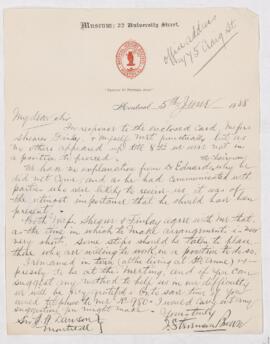 Museum: 32 University Street.
office address
475 Craig St.
Montreal 5th June 1888
My dear sir
In response to the enclosed card, Messrs
Shearer Finlay & myself met punctually but as
no others appeared up till 8 we were not in
a position to proceed.
We have no explanation from Dr Edwards why he
did not come, and as he had communicated with
parties who were likely to receive us it was of
the utmost importance that he should have been
present.
Both Messrs Shearer & Finlay agree with me that
as the time in which to make arrangements is now
very short, some steps should be taken to have
those who are willing to work in a position to do so.
I remained in town
to be at this meeting, and if you can
suggest any method to help us in our difficulty
we will be very grateful. Or to save time if you
would telephone to me No 980 - I would carry out any
suggestion you might make.
Yours truly
J. Stevenson Brown
Sir J W Dawson
Montreal